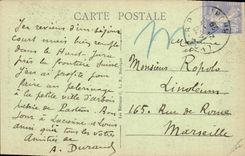 CARTE POSTALE
Je reviens d'un séjour
court mais bien rempli
dans le Haut-Jura
près la frontière suisse
J'en ai profité pour
faire un pèlerinage
à la petite ville d'Arbois
patrie de Pasteur. Mon
à Lucienne
ainsi que tous les Votre
Amitiés de
A. Durand
Monsieur Ropolo
Linoleum
165 Rue de Rome
Marseille